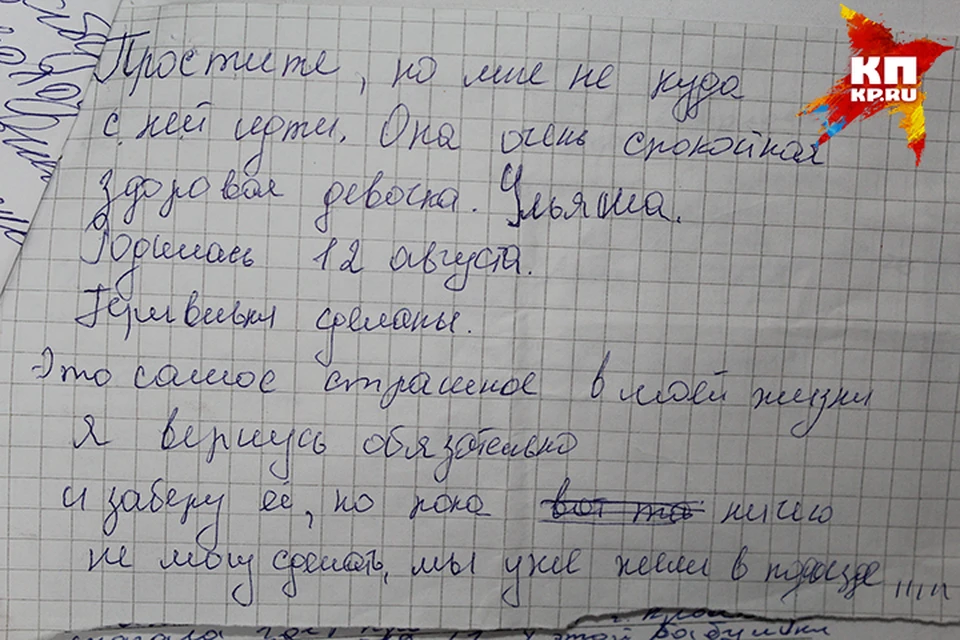 КП
KP.RU
Простите, но мне не куда
с ней идти. Она очень спокойная
здоровая девочка. Ульяша.
Родилась 12 августа.
Прививки сделаны.
Это самое страшное в моей жизни
Я вернусь обязательно
и заберу её, но пока вот та ничего
не могу сделать, мы уже жили в подъезде
этой